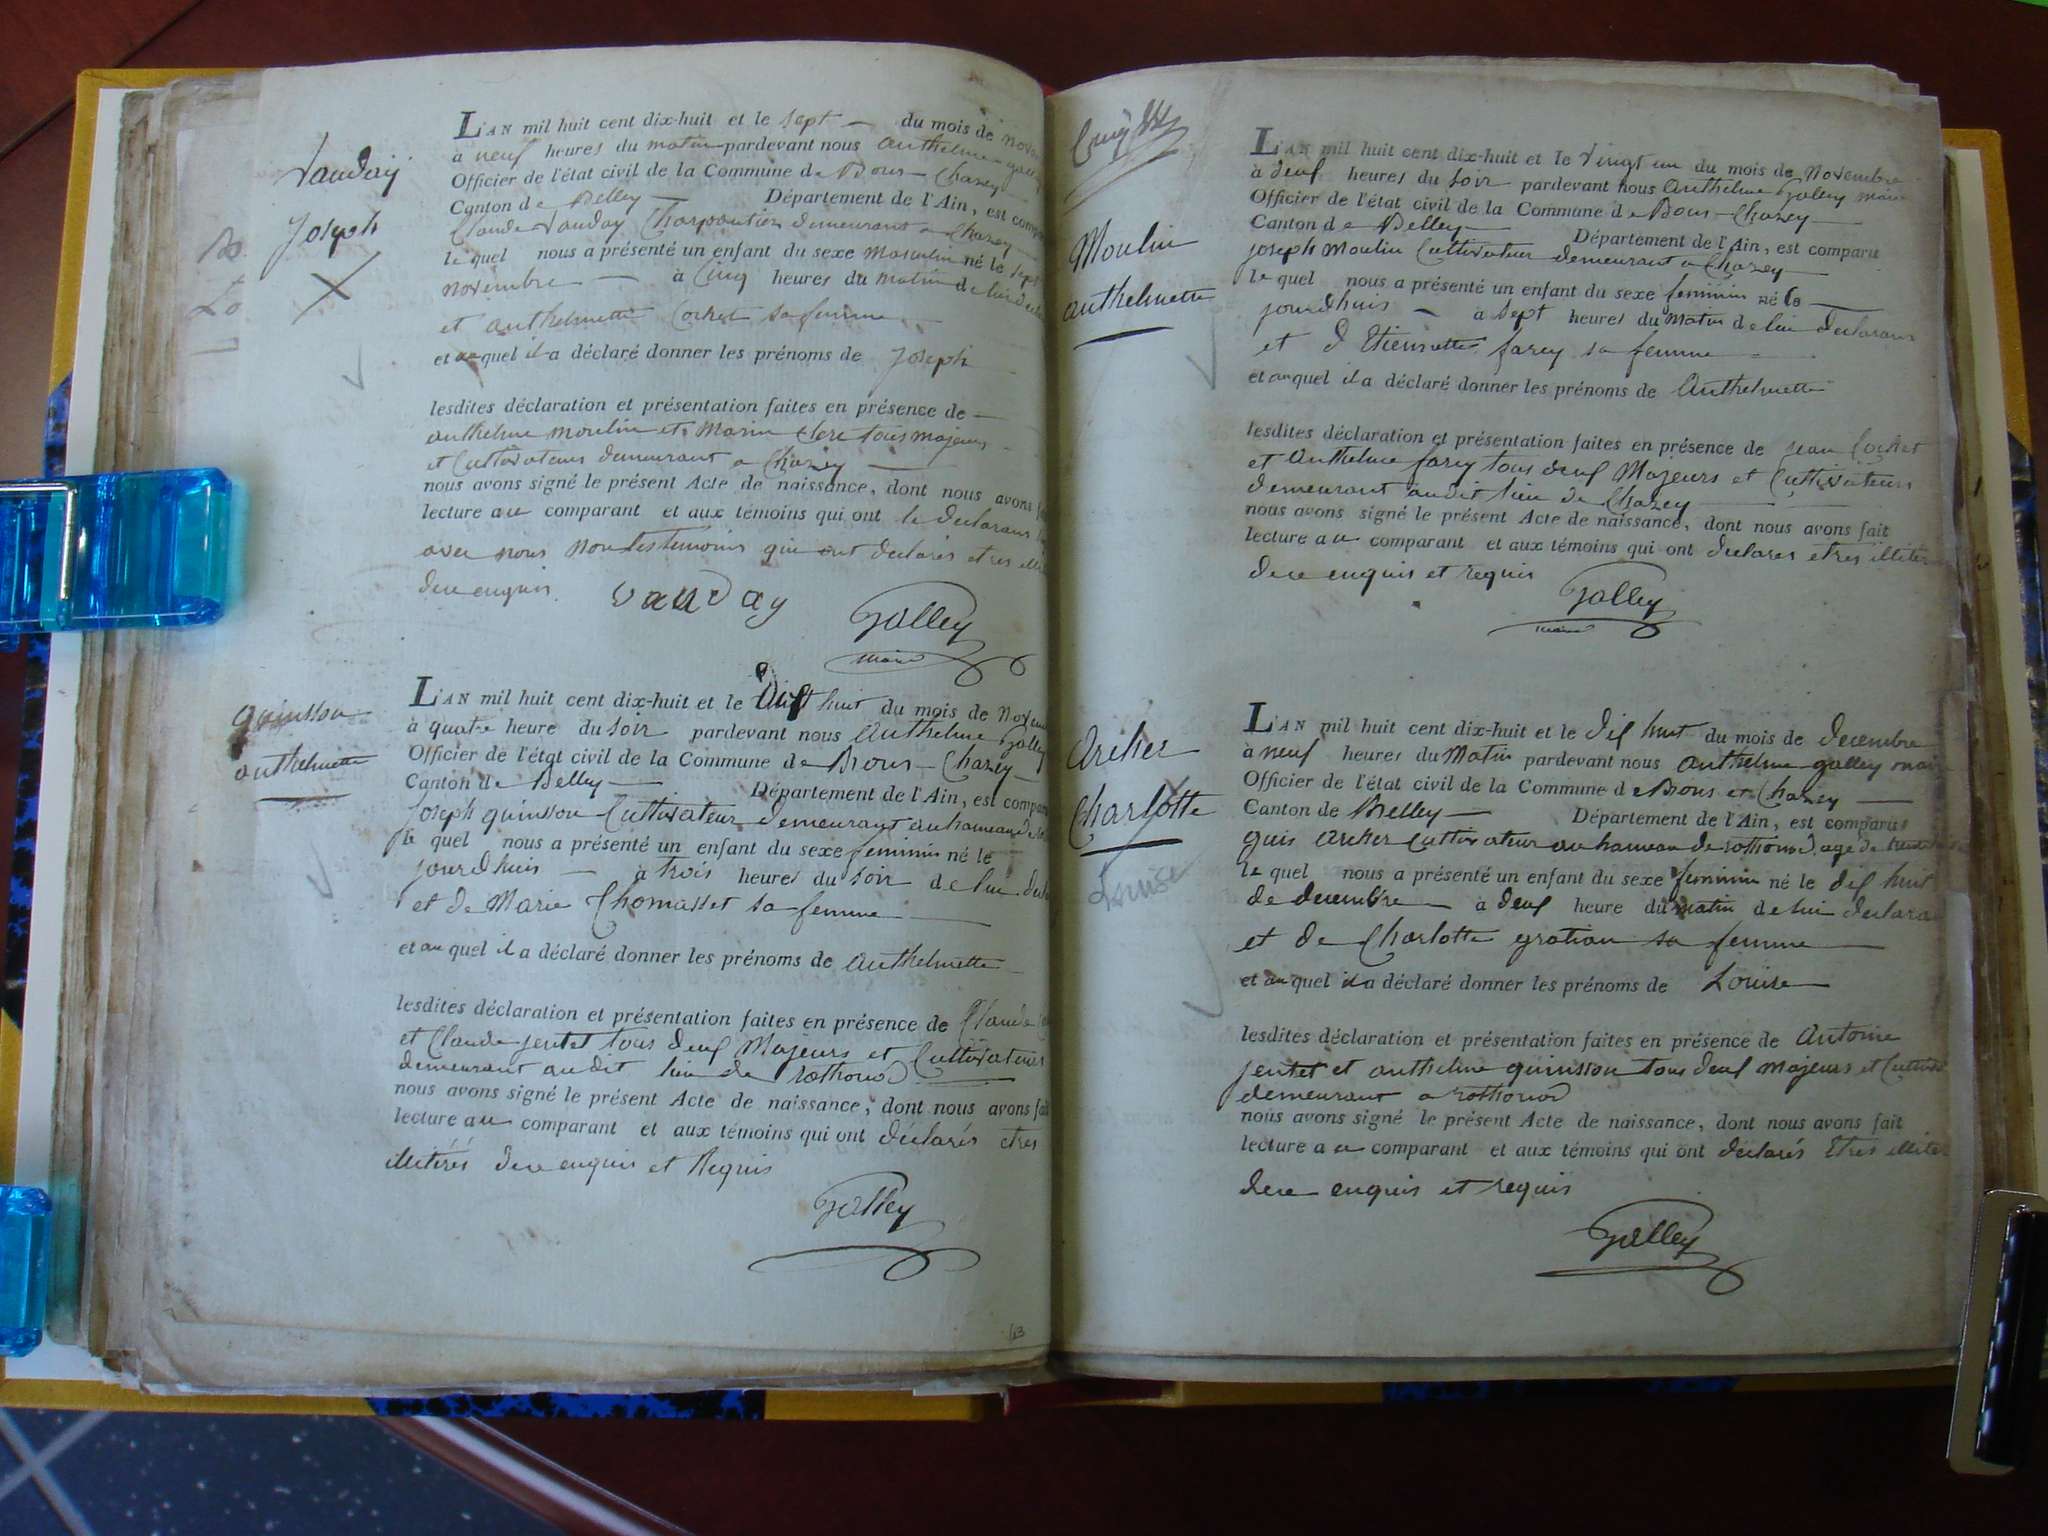 Vauday
Joseph
L'AN mil huit cent dix-huit et le sept du mois de
à neuf heures du matin pardevant nous anthelme
Officier de l'état civil de la Commune de Bons Chazey
Canton de Belley Département de l'Ain, est
Claude Vauday Charpantier demeurant a Chazey
le quel nous a présenté un enfant du sexe Masculin né le sept
novembre à Cinq heures du matin de lui
et anthelmette Cochet sa femme
et auquel il a déclaré donner les prénoms de Joseph
lesdites déclaration et présentation faites en présence de
anthelme moulin et Marin Clerc tous majeurs
et Cultivateurs demeurant a Chazey
nous avons signé le présent Acte de naissance, dont nous avons
lecture au comparant et aux témoins qui ont le declarant
avec nous non les temoins qui ont declarés etres
de ce enquis vauday Galley
maire
quinson
anthelmette
L'AN mil huit cent dix-huit et le huit du mois de
à quatre heure du soir pardevant nous Anthelme Galley
Officier de l'état civil de la Commune de Bons Chazey
Canton de Belley Département de l'Ain, est
Joseph quinson Cultivateur demeurant au hameau de
le quel nous a présenté un enfant du sexe feminin né le
jourdhuis à trois heures du soir de lui
et de Marie Thomasset sa femme
et au quel il a déclaré donner les prénoms de anthelmette
lesdites déclaration et présentation faites en présence de Claude
et Claude jentet tous deux Majeurs et Cultivateurs
demeurant audit lieu de rothonod
nous avons signé le présent Acte de naissance, dont nous avons fait
lecture au comparant et aux témoins qui ont déclarés etres
illitérés de ce enquis et Requis
Galley
Moulin
anthelmette
L'AN mil huit cent dix-huit et le vingt un du mois de Novembre
à deux heures du soir pardevant nous Anthelme Galley maire
Officier de l'état civil de la Commune de Bons Chazey
Canton de Belley Département de l'Ain, est comparu
joseph Moulin Cultivateur demeurant a Chazey
le quel nous a présenté un enfant du sexe feminin né le
jourdhuis à sept heures du matin de lui declarant
et d Etiennette farcy sa femme
et auquel il a déclaré donner les prénoms de Anthelmette
lesdites déclaration et présentation faites en présence de jean Cochet
et Anthelme farcy tous deux Majeurs et Cultivateurs
demeurant audit lieu de Chazey
nous avons signé le présent Acte de naissance, dont nous avons fait
lecture au comparant et aux témoins qui ont declarés etres
de ce enquis et requis Galley
maire
Archer
Charlotte
Louise
L'AN mil huit cent dix-huit et le dix huit du mois de decembre
à neuf heures du Matin pardevant nous anthelme galley maire
Officier de l'état civil de la Commune de Bons et Chazey
Canton de Belley Département de l'Ain, est comparu
Archer Cultivateur au hameau de rothonod age de
le quel nous a présenté un enfant du sexe feminin né le dix huit
de decembre à deux heure du matin de lui
et de Charlotte gration sa femme
et au quel il a déclaré donner les prénoms de Louise
lesdites déclaration et présentation faites en présence de Antoine
jentet et anthelme quinsson tous deux Majeurs et
demeurant a rothonod
nous avons signé le présent Acte de naissance, dont nous avons fait
lecture au comparant et aux témoins qui ont declarés Etres
de ce enquis et requis
Galley